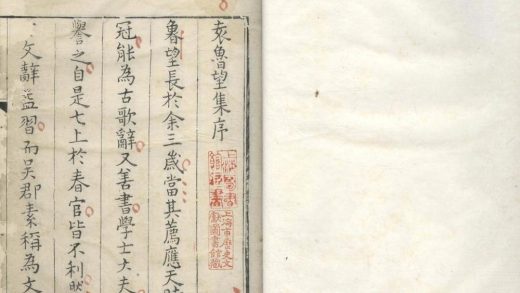 袁魯望集序
上海市歷史文
獻圖書館藏
魯望長於余三歲當其薦應天時
冠能為古歌辭又善書學士大夫
譽之自是七上於春官皆不利然
文辭益習而吳郡素稱為文